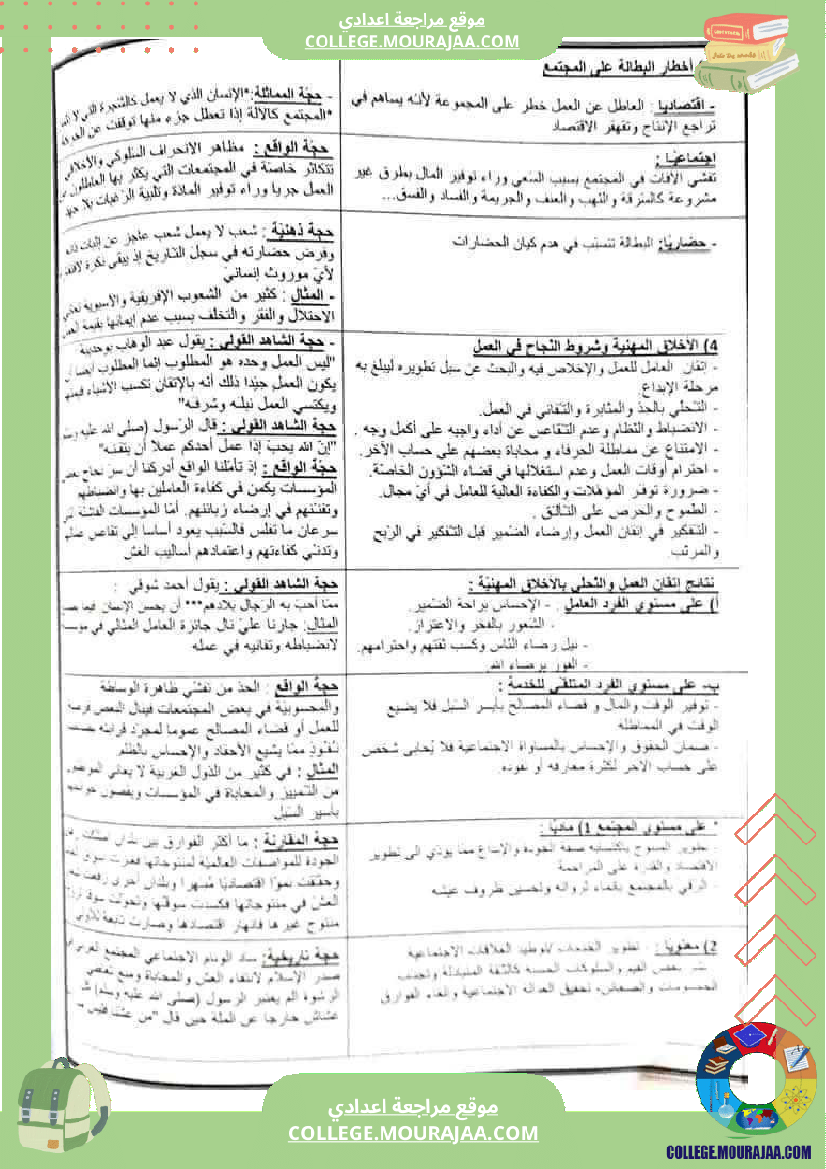 موقع مراجعة اعدادي
COLLEGE.MOURAJAA.COM
أخطار البطالة على المجتمع
- اقتصاديا : العاطل عن العمل خطر على المجموعة لأنه يساهم في
تراجع الإنتاج وتقهقر الاقتصاد
- حجّة المماثلة: *الإنسان الذي لا يعمل كالشجرة التي لا
*المجتمع كالآلة إذا تعطل جزء منها توقفت عن
إجتماعيّا :
تفشي الآفات في المجتمع بسبب السّعي وراء توفير المال بطرق غير
مشروعة كالسّرقة والنّهب والعنف والجريمة والفساد والفسق...
حجّة الواقع : مظاهر الانحراف السّلوكي والأخلاقي
تتكاثر خاصّة في المجتمعات التي يكثر بها العاطلون
العمل جريا وراء توفير المادّة وتلبية الرّغبات بلا
- حضاريّا: البطالة تتسبّب في هدم كيان الحضارات
حجة ذهنيّة : شعب لا يعمل شعب عاجز عن إثبات
وفرض حضارته في سجل التّاريخ إذ يبقى فكرة
لأيّ موروث إنساني
- المثال : كثير من الشعوب الإفريقية والآسيوية
الاحتلال والفقر والتخلّف بسبب عدم إيمانها بقيمة العمل
4) الأخلاق المهنية وشروط النّجاح في العمل
- إتقان العامل للعمل والإخلاص فيه والبحث عن سبل تطويره ليبلغ به
مرحلة الإبداع.
- التّحلي بالجدّ والمثابرة والتّفاني في العمل.
- الانضباط والنّظام وعدم التّقاعص عن أداء واجبه على أكمل وجه .
- الامتناع عن مماطلة الحرفاء و محاباة بعضهم على حساب الآخر.
- احترام أوقات العمل وعدم استغلالها في قضاء الشّؤون الخاصّة.
- ضرورة توفّر المؤهّلات والكفاءة العالية للعامل في أيّ مجال.
- الطّموح والحرص على التّألق .
- التّفكير في إتقان العمل وإرضاء الضّمير قبل التّفكير في الرّبح
والمرتّب.
- حجة الشّاهد القولي : يقول عبد الوهاب بوحديبة
"ليس العمل وحده هو المطلوب إنما المطلوب أيضا أن
يكون العمل جيّدا ذلك أنه بالإتقان تكسب الأشياء
ويكتسي العمل نبله وشرفه"
حجة الشّاهد القولي : قال الرّسول (صلى الله عليه
"إنّ الله يحبّ إذا عمل أحدكم عملا أن يتقنه"
حجّة الواقع : إذ تأمّلنا الواقع أدركنا أن سرّ نجاح
المؤسسات يكمن في كفاءة العاملين بها وانضباطهم
وتفنّنهم في إرضاء زبائنهم. أمّا المؤسسات
سرعان ما تفلس فالسّبب يعود أساسا إلى تقاعص
وتدنّي كفاءتهم واعتمادهم أساليب الغش
نتائج إتقان العمل والتّحلي بالأخلاق المهنيّة :
أ) على مستوى الفرد العامل : - الإحساس براحة الضّمير.
- الشّعور بالفخر والاعتزاز.
- نيل رضاء النّاس وكسب ثقتهم واحترامهم.
- الفوز برضاء الله
حجة الشاهد القولي : يقول أحمد شوقي :
ممّا أحبّ به الرّجال بلادهم*** أن يحسن الإنسان فيما
المثال: جارنا عليّ نال جائزة العامل المثالي في
لانضباطه وتفانيه في عمله
ب- على مستوى الفرد المتلقّي للخدمة :
- توفير الوقت والمال و قضاء المصالح بأيسر السّبل فلا يضيع
الوقت في المماطلة
- ضمان الحقوق والإحساس بالمساواة الاجتماعية فلا يُحابى شخص
على حساب الآخر لكثرة معارفه أو نفوذه.
حجة الواقع : الحدّ من تفشّي ظاهرة الوساطة
والمحسوبيّة في بعض المجتمعات فينال البعض
للعمل أو قضاء المصالح عموما لمجرّد قرابته
نفوذ ممّا يشيع الأحقاد والإحساس بالظلم
المثال : في كثير من الدّول الغربية لا يعاني
من التّمييز والمحاباة في المؤسسات ويقضون
بأيسر السّبل
* على مستوى المجتمع 1) مادّيّا :
- تطوير المنتوج باكتسابه صفة الجودة والإبداع ممّا يؤدّي الى تطوير
الاقتصاد والقدرة على المزاحمة
- الرقي بالمجتمع بإنماء ثرواته وتحسين ظروف عيشه
حجة المقارنة : ما أكثر الفوارق بين بلدان
الجودة للمواصفات العالميّة لمنتوجاتها فغزت
وحقّقت نموّا اقتصاديّا مُبهرا وبلدان أخرى
الغشّ في منتوجاتها فكسدت سوقها وتحولت سوقا
منتوج غيرها فانهار اقتصادها وصارت تابعة
2) معنويّا : - تطوير الخدمات /توطيد العلاقات الاجتماعية
القيم والسلوكات الحسنة كالثقة المتبادلة وتجنب
الخصومات والضغائن، تحقيق العدالة الاجتماعية وإلغاء الفوارق
حجة تاريخية: ساد الوئام الاجتماعي المجتمع العربي
صدر الإسلام لانتفاء الغش والمحاباة ومنع
الرشوة ألم يعتبر الرسول (صلى الله عليه وسلم)
غشّاش خارجا عن الملّة حين قال "من غشّنا فليس
موقع مراجعة اعدادي
COLLEGE.MOURAJAA.COM
COLLEGE.MOURAJAA.COM